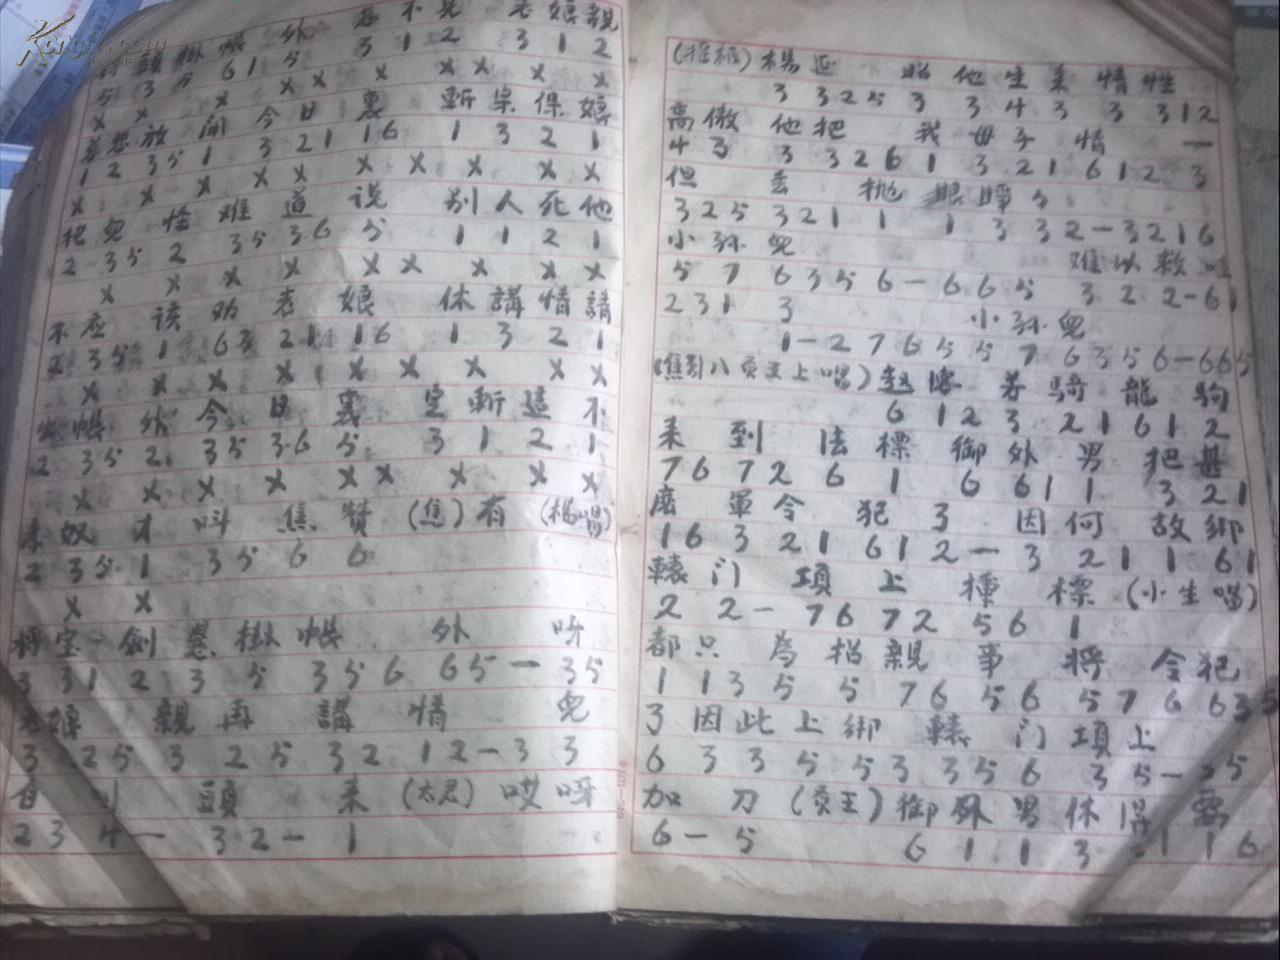 忍不見 老娘親
頭掛帳外 3 1 2 3 1 2
5 3 5 6 1 5 x x x x x
x x x x x 斬宗保娘
放開今日裏 1 3 2 1
1 2 3 5 1 3 2 1 1 6 x x x x
x x x x x 别人死他
把兒怪难道说 1 1 2 1
2 - 3 5 2 3 5 3 6 5
x x x x x x x x
不应该劝老娘 休講情請
2 3 5 1 6 3 2 1 1 6 1 3 2 1
x x x x x x x x
帳外今日裏定斬這不
2 3 5 2 3 5 3 6 5 3 1 2 1
x x x x x x x x
孝奴才叫焦贊(焦)有(楊唱)
2 3 5 1 3 5 6 6
x x
將宝劍懸掛帳外呀
3 3 1 2 3 5 3 5 6 6 5 - 3 5
老娘親再講情 兒
3 2 5 3 2 5 3 2 1 2 - 3 3
頭来(太君)哎呀
2 3 4 - 3 2 - 1
楊延昭他生来情性
3 3 2 5 3 3 4 3 3 3 1 2
高傲他把我母子情一
4 3 3 3 2 6 1 3 2 1 6 1 2 3
但丢抛眼睁々
3 2 5 3 2 1 1 1 3 3 2 - 3 2 1 6
小孙兒 难以救
5 7 6 3 5 6 - 6 6 5 3 2 2 - 6 1
2 3 1 3 小孙兒
1 - 2 7 6 5 5 7 6 3 5 6 - 6 6 5
(焦引八贤王上唱)赵德芳騎龍驹
6 1 2 3 2 1 6 1 2
来到法標御外男把甚
7 6 7 2 6 1 6 6 1 1 3 2 1
麽軍令犯了因何故綁
1 6 3 2 1 6 1 2 - 3 2 1 1 6 1
轅门項上揷標(小生唱)
2 2 - 7 6 7 2 5 6 1
都只為招親事將令犯
1 1 3 5 5 7 6 5 6 5 7 6 6 3 5
了因此上綁轅门項上
6 3 3 5 5 3 3 5 6 3 5 - 3 5
加刀(贤王)御外男休得要
6 - 5 6 1 1 3 - 1 1 6